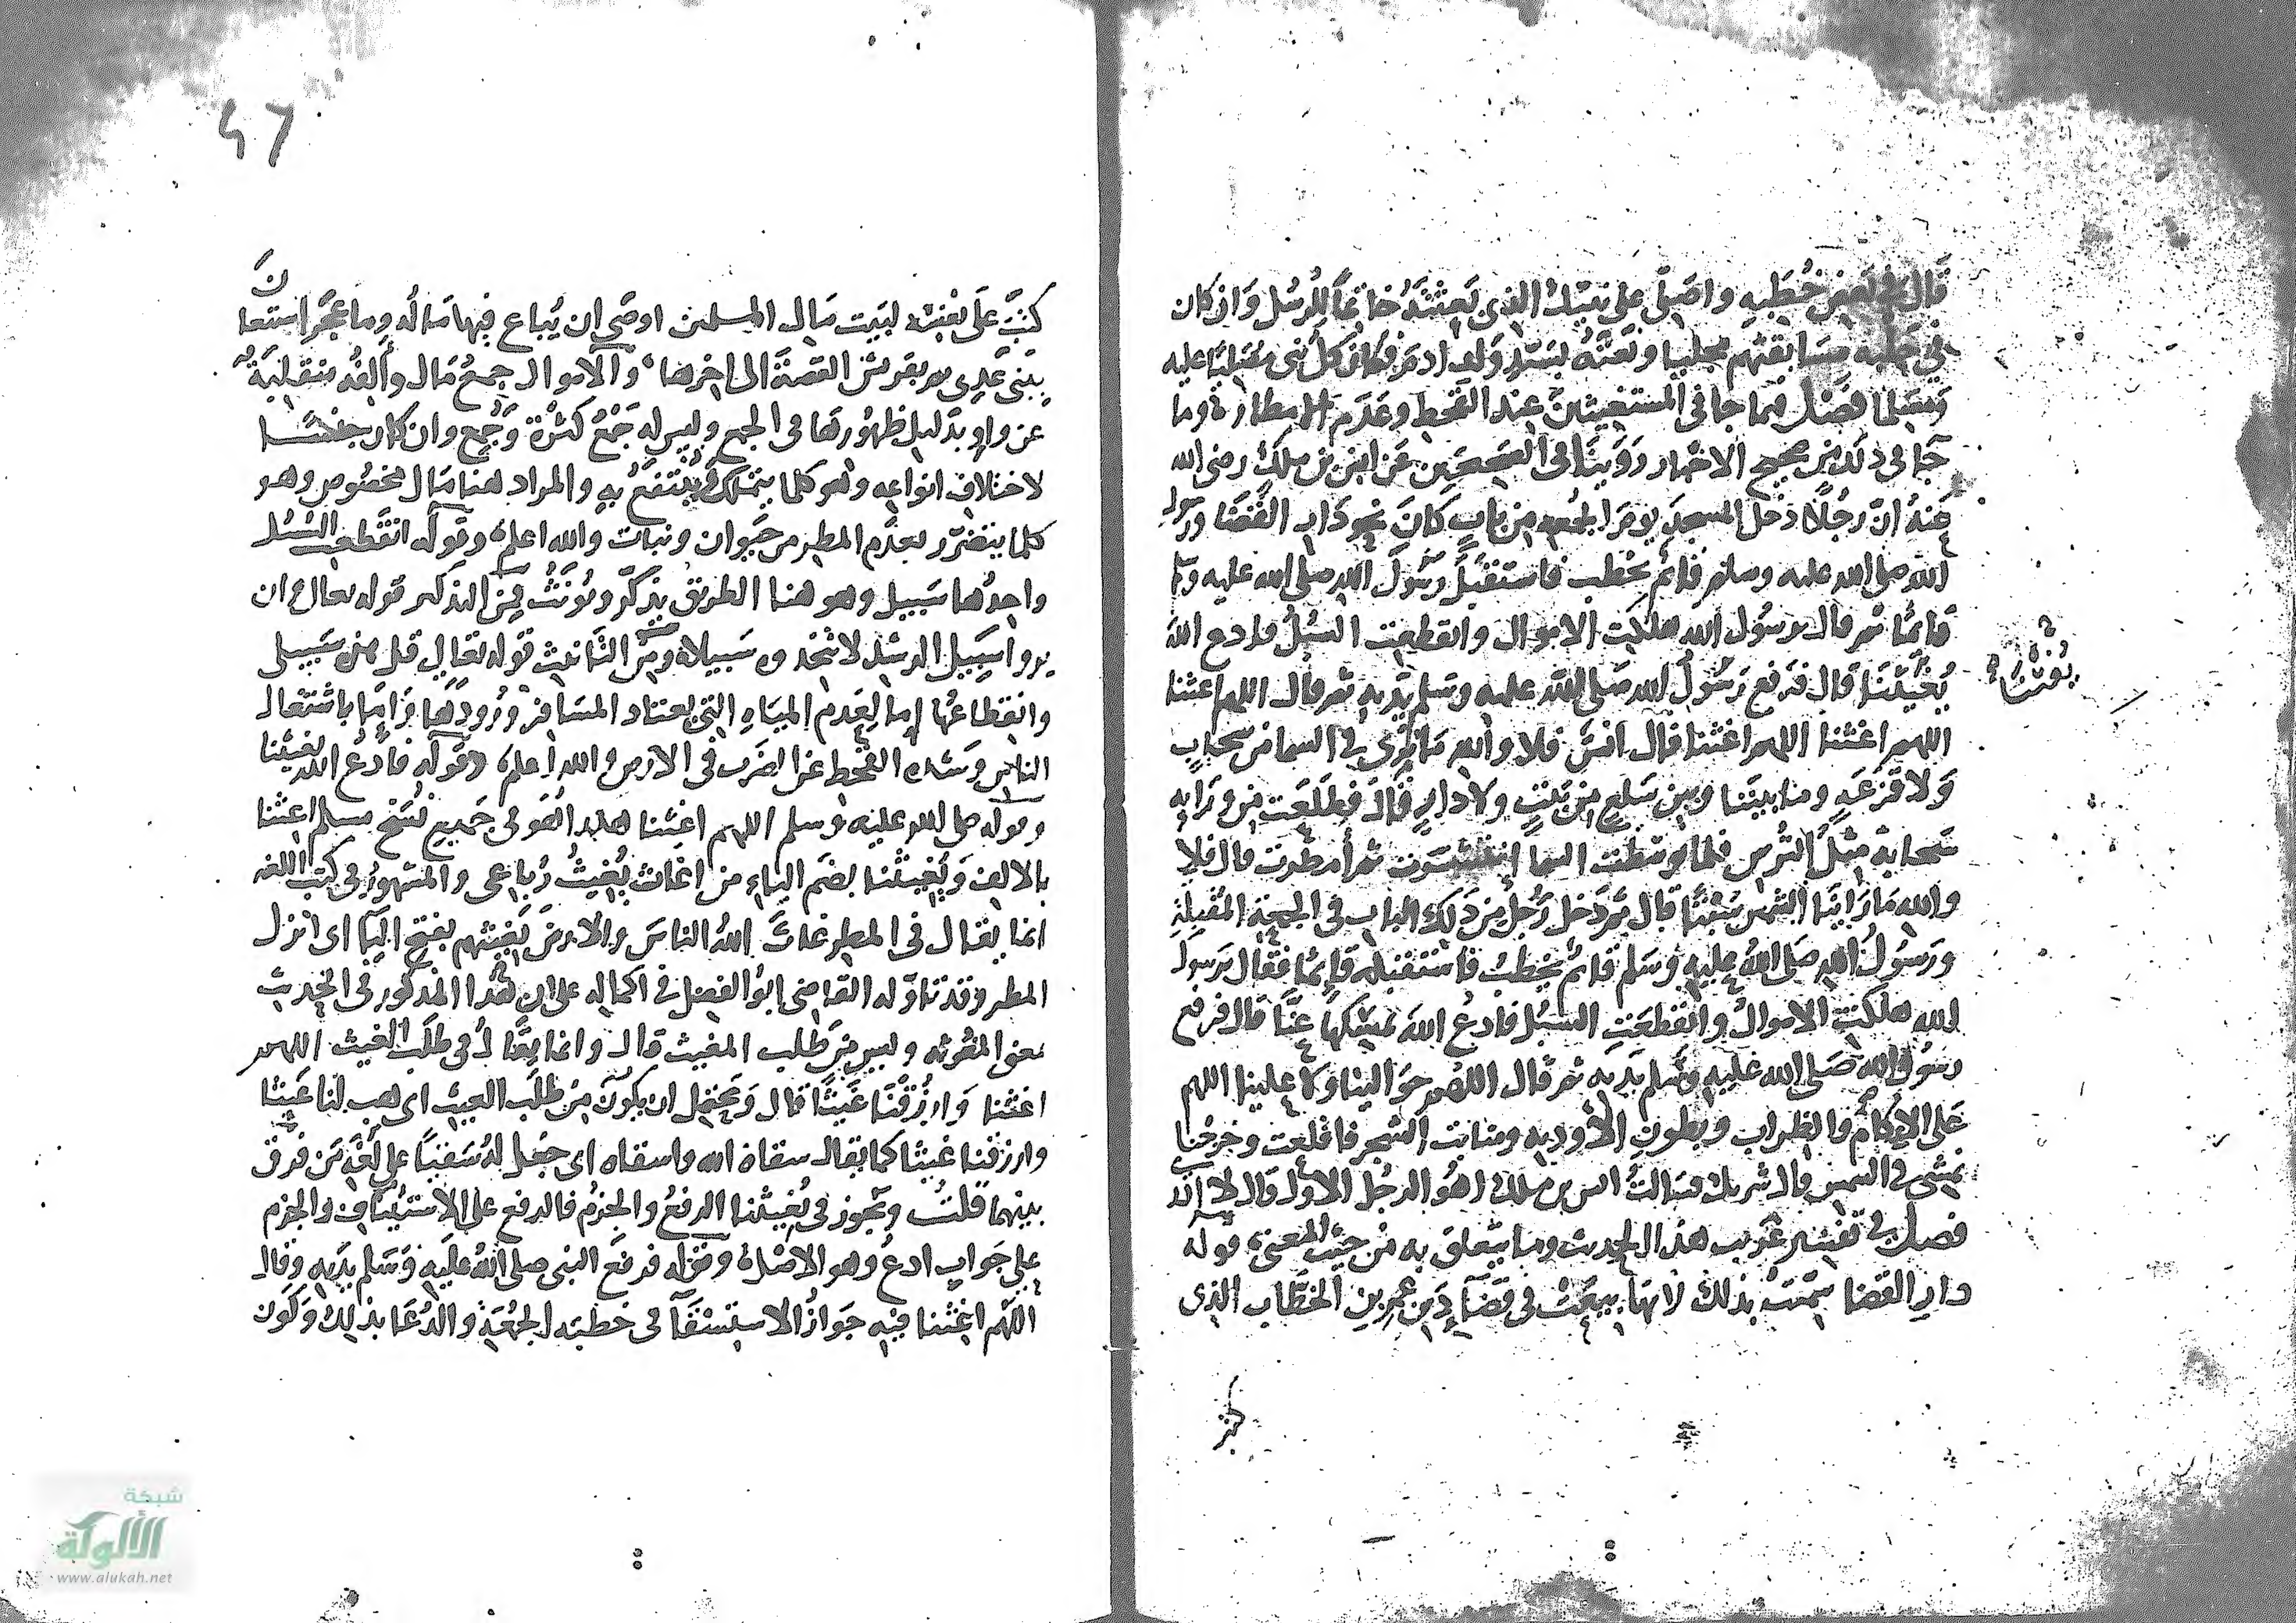 قَال في بعض خُطَبِه واصَلّى على نبيّك الذي بَعَثتَه خاتِمًا للرُسُل وَان كان
في حَلبة مسابقتهم مجليا وبَعَثْتَه بسَيّد وَلد ادم وكان كلّ نبى مصَليّا عليه
ومصَليا فصْل فيما جا في المستغيثين عند القحط وعَدَم الامطار وما
جَا في ذلك من صحيح الاخبار رَوَينَا في الصَّحيحَين عَن انس بن ملك رضى الله
عَنهُ انّ رجُلًا دَخل المسجد يومَ الجُمعه من باب كانَ نحو دَار القَضَا ورَسول
الله صلى الله عليه وسلم قائم يخطب فاستقبَلَ رسُولَ الله صلى الله عليه وسلم
قائمًا ثم قال يرسُول الله هلكَت الاموال وانقطعت السُبُل فادع اللهَ
يُغيثَنَا قال فرَفع رسُولُ الله صَلى الله عليه وسَلم يَديه ثم قال اللهم اغثنا
اللهم اغثنا اللهم اغثنا قال انسٌ فلا والله مَا نرَى في السما من سحَابٍ
وَلا قَزعَهٍ وما بينَنا وبين سَلع من بَيتٍ ولا دارٍ قَالَ فطلعَت من ورَايه
سَحابة مثلُ التُرسِ فلما توسَّطت السما انتشرَت ثم أمطرت قال فلا
والله مَا رَاينَا الشمسَ سَبْتًا قال ثم دَخل رَجُل من ذَلك الباب في الجمعَة المُقبلةِ
ورَسُولُ الله صَلى اللهُ عليه وسَلم قائمٌ يخطبُ فاستقبله قائمًا فقال يرسولَ
الله هلكَت الاموالُ وانقطعَتِ السبُل فادعُ اللهَ يمسكهَا عنَّا قال فرفع
رسُولُ الله صَلى الله عليه وسَلم يدَيه ثم قال اللهم حوَالينا ولا علينا اللهم
عَلى الاكام والظراب وبطونِ الأوديه ومنابت الشجر فاقلعت وخرجْنا
نمشى في الشمس قال شريك فسَالتُ انس بن ملك اهُوَ الرجُل الأولُ قال لا ادرى
فصل في تفسير غريب هذا الحديث وما يتَعلق به من حيث المعنى قوله
دارِ القضا سمّيَت بذلك لانهَا بيعَت في قضَا دَين عمر بن الخطّاب الذي
يُغثنا
كتب
47
كتبَ على نفسه لبَيت مَال المسلمين اوصَى ان يُباع فيها مَالُه وما عجز استعانَ
ببنى عَدِى ثم بقريش القصةَ الى اخرها والاموال جمعُ مَال وألفُه منقلبَةٌ
عن واوٍ بدَليل ظهُورهَا في الجمع وليس له جَمْعُ كثرَة وجُمع وان كان جنسًا
لاختلاف انواعِه وهو كلما يتمَلكُ ويُنتفعُ به والمراد هنا مَال مخصُوص وهو
كلما يتضرّر بعدَم المطر من حَيوان ونبات والله اعلم وقوله انقَطعت السُبُل
واحدُها سَبيل وهو هنا الطريق يذكّر ويُؤنَّثُ فمن التذكير قوله تعالى وان
يروا سَبيل الرشد لا يتخذوه سَبيلا ومن التَّانيث قوله تعَالى قل هذه سَبيلى
وانقطاعُها إما لعَدم الميَاهِ التي يعتاد المسَافر وُرُودَهَا وَامّا باشتغال
الناس وشدّه القحط عن الضَرب في الارض والله أعلم وقوله فادعُ الله يغيثنا
وقوله صلى الله عليه وسلم اللهم اغثنا هكذا هُو في جَميع نُسَخ مسلم اغثنا
بالالف وَيُغيثُنا بضَم الياء من اغاث يُغيثُ رُباعى والمشهورُ في كتب اللغه
انما يقال في المطر غاثَ اللهُ الناسَ والارضَ يَغيثهم بفتح اليَا اى انزل
المطر وقد تاوّله القاضي ابوُ الفضل في اكماله على ان هذا المذكور في الحديث
بمعنى المغوثه وليس من طلب الغيث قال وانما يقَال في طلَب الغيث اللهم
اغثنا وَارزُقْنَا غَيثًا قال وَيحتمل ان يكُون من طلَب الغيث اى هب لنا غَيثا
وارزقنا غيثا كما يقال سقاهُ الله واسقاه اى جعَل له سَقيًا على لغَة مَن فرّق
بينهما قلت وَيجُوز في يُغيثنا الرفعُ والجزمُ فالرفع على الاستينَاف والجزم
على جَواب ادعُ وهو الامثل وقوله فرفعَ النبى صلى اللهُ عليه وسَلم يدَيه وقال
اللهم اغثنا فيه جَوازُ الاستسْقَا في خطبته الجمُعَة والدُعَا بذلك وكَون
شبكة
الألوكة
www.alukah.net